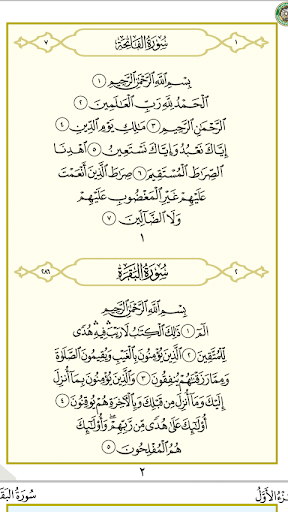 ٧ سُورَةُ الفَاتِحَةِ ١
بِسْمِ ٱللَّهِ ٱلرَّحْمَٰنِ ٱلرَّحِيمِ ١
ٱلْحَمْدُ لِلَّهِ رَبِّ ٱلْعَٰلَمِينَ ٢
ٱلرَّحْمَٰنِ ٱلرَّحِيمِ ٣ مَٰلِكِ يَوْمِ ٱلدِّينِ ٤
إِيَّاكَ نَعْبُدُ وَإِيَّاكَ نَسْتَعِينُ ٥ ٱهْدِنَا
ٱلصِّرَٰطَ ٱلْمُسْتَقِيمَ ٦ صِرَٰطَ ٱلَّذِينَ أَنْعَمْتَ
عَلَيْهِمْ غَيْرِ ٱلْمَغْضُوبِ عَلَيْهِمْ
وَلَا ٱلضَّآلِّينَ ٧
١
٢٨٦ سُورَةُ البَقَرَةِ ٢
بِسْمِ ٱللَّهِ ٱلرَّحْمَٰنِ ٱلرَّحِيمِ
الٓمٓ ١ ذَٰلِكَ ٱلْكِتَٰبُ لَا رَيْبَۛ فِيهِۛ هُدًى
لِّلْمُتَّقِينَ ٢ ٱلَّذِينَ يُؤْمِنُونَ بِٱلْغَيْبِ وَيُقِيمُونَ ٱلصَّلَوٰةَ
وَمِمَّا رَزَقْنَٰهُمْ يُنفِقُونَ ٣ وَٱلَّذِينَ يُؤْمِنُونَ بِمَآ أُنزِلَ
إِلَيْكَ وَمَآ أُنزِلَ مِن قَبْلِكَ وَبِٱلْءَاخِرَةِ هُمْ يُوقِنُونَ ٤
أُو۟لَٰٓئِكَ عَلَىٰ هُدًى مِّن رَّبِّهِمْۖ وَأُو۟لَٰٓئِكَ
هُمُ ٱلْمُفْلِحُونَ ٥
٢
سُورَةُ البَقَ
زْءُ الأَوَّلُ